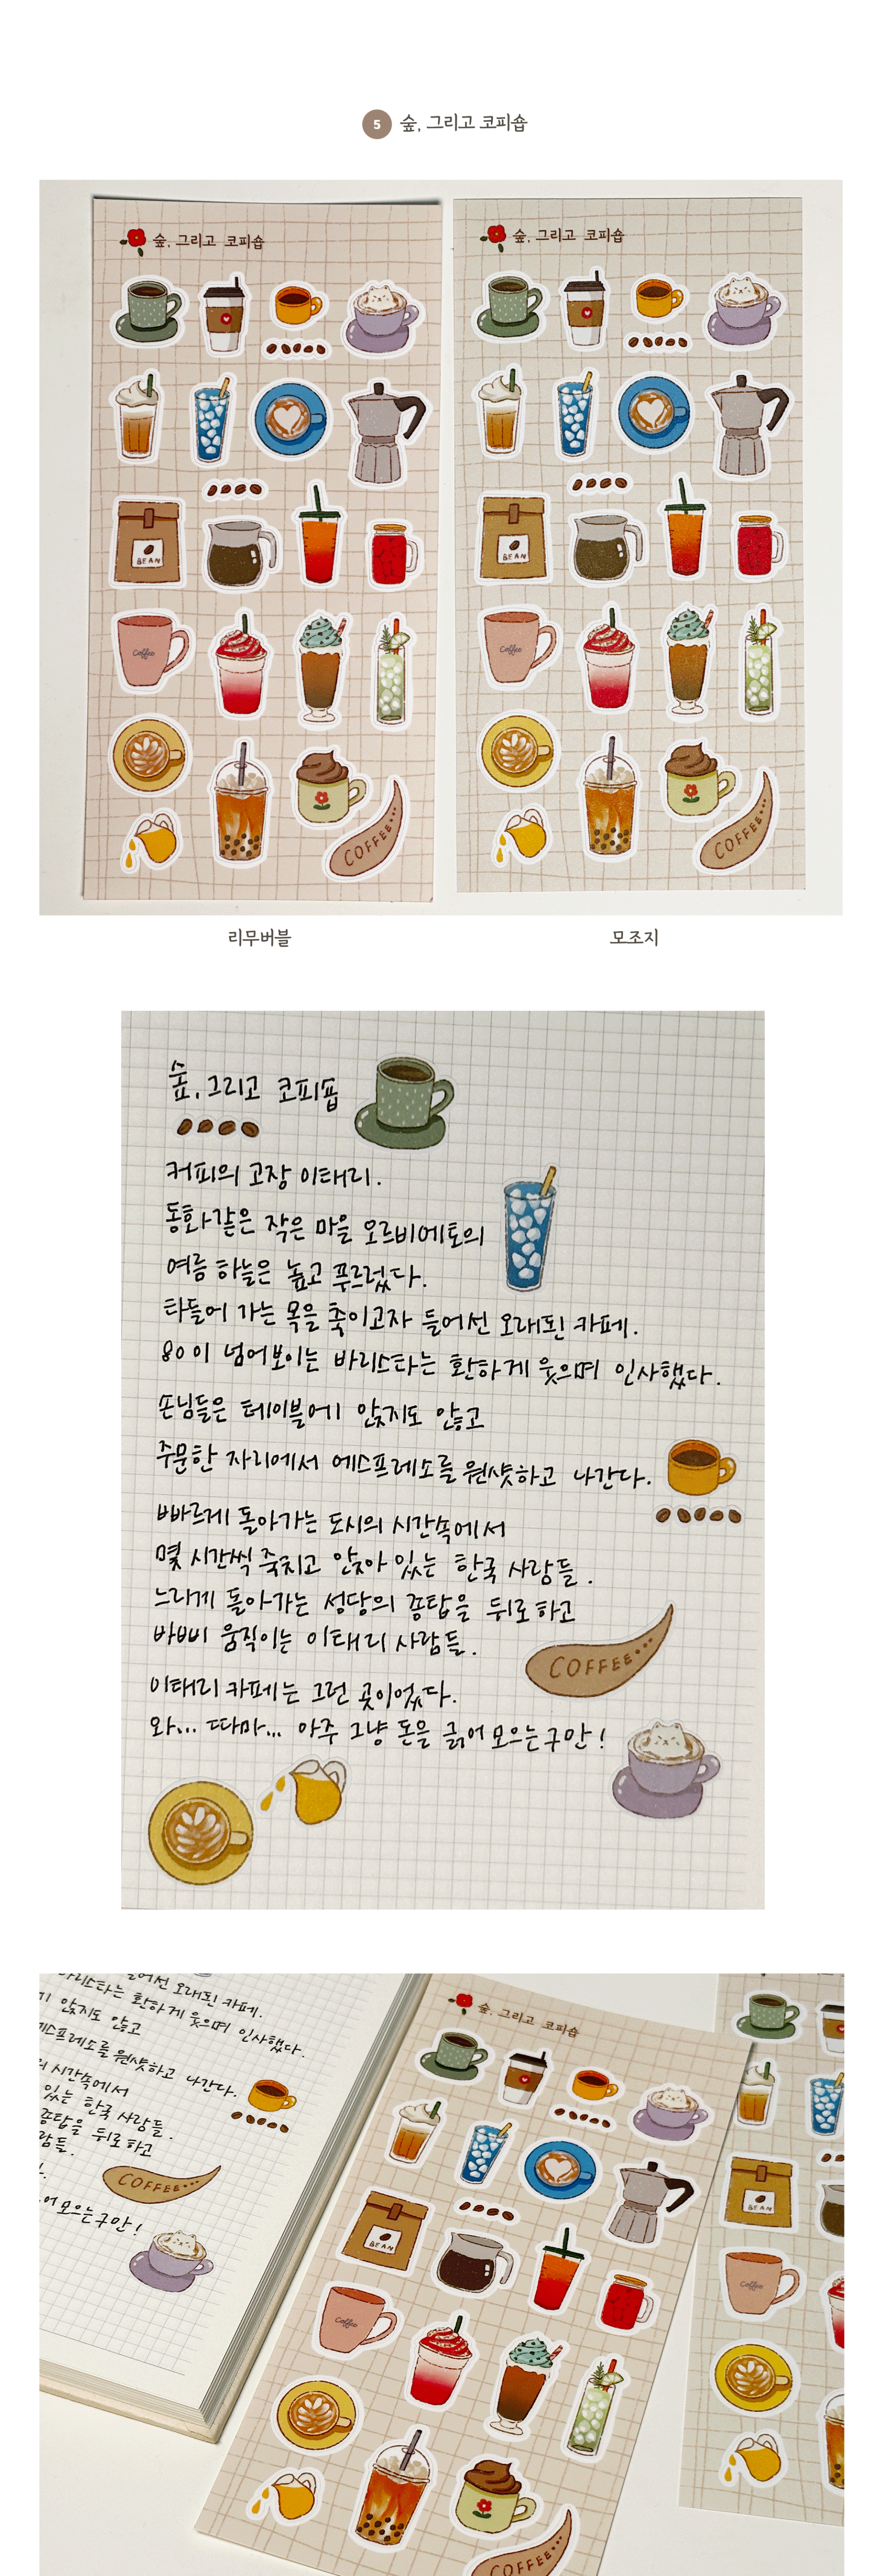 5 숲, 그리고 코피숍
숲, 그리고 코피숍
BEAN
Coffee
COFFEE...
숲, 그리고 코피숍
BEAN
Coffee
COFFEE...
리무버블
모조지
숲, 그리고 코피숍
커피의 고장 이태리.
동화같은 작은 마을 오르비에토의
여름 하늘은 높고 푸르렀다.
타들어 가는 목을 축이고자 들어선 오래된 카페.
80이 넘어보이는 바리스타는 환하게 웃으며 인사했다.
손님들은 테이블에 앉지도 않고
주문한 자리에서 에스프레소를 원샷하고 나간다.
빠르게 돌아가는 도시의 시간속에서
몇 시간씩 죽치고 앉아 있는 한국 사람들.
느리게 돌아가는 성당의 종탑을 뒤로하고
바삐 움직이는 이태리 사람들.
COFFEE...
이태리 카페는 그런 곳이었다.
와... 따마... 아주 그냥 돈을 긁어모으는구만!
들어선 오래된 카페.
바리스타는 환하게 웃으며 인사했다.
앉지도 않고
에스프레소를 원샷하고 나간다.
시간속에서
있는 한국 사람들.
종탑을 뒤로하고
람들.
COFFEE...
어모으는구만!
숲, 그리고 코피숍
BEAN
Coffee
COFFEE...
BEAN
Coffee